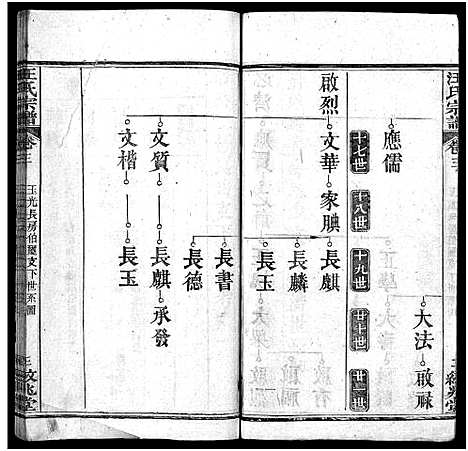 汪氏宗譜
卷三
大法
啟祿
應儒
十七世
十八世
十九世
二十世
啟烈
文華
家腆
長麒
長麟
長玉
長書
長德
文質
長麒
承發
文楷
長玉
汪氏宗譜
卷三
玉光長房伯屋支下世系圖